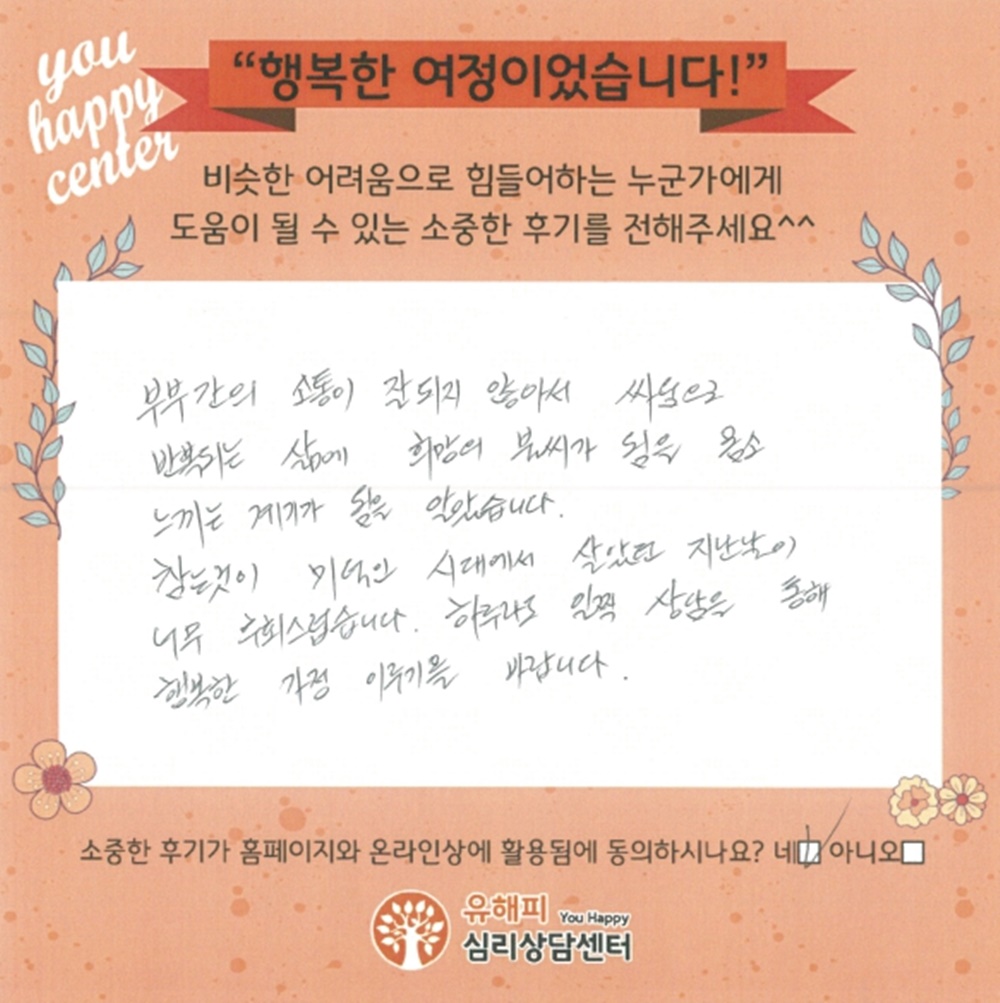 you
happy
center
“행복한 여정이었습니다!”
비슷한 어려움으로 힘들어하는 누군가에게
도움이 될 수 있는 소중한 후기를 전해주세요^^
부부간의 소통이 잘되지 않아서 싸움으로
반복되는 삶에 희망의 불씨가 됨을 몸소
느끼는 계기가 됨을 알았습니다.
참는것이 미덕인 시대에서 살았던 지난날이
너무 후회스럽습니다. 하루라도 일찍 상담을 통해
행복한 가정 이루기를 바랍니다.
소중한 후기가 홈페이지와 온라인상에 활용됨에 동의하시나요? 네☑ 아니오☐
유해피 You Happy
심리상담센터